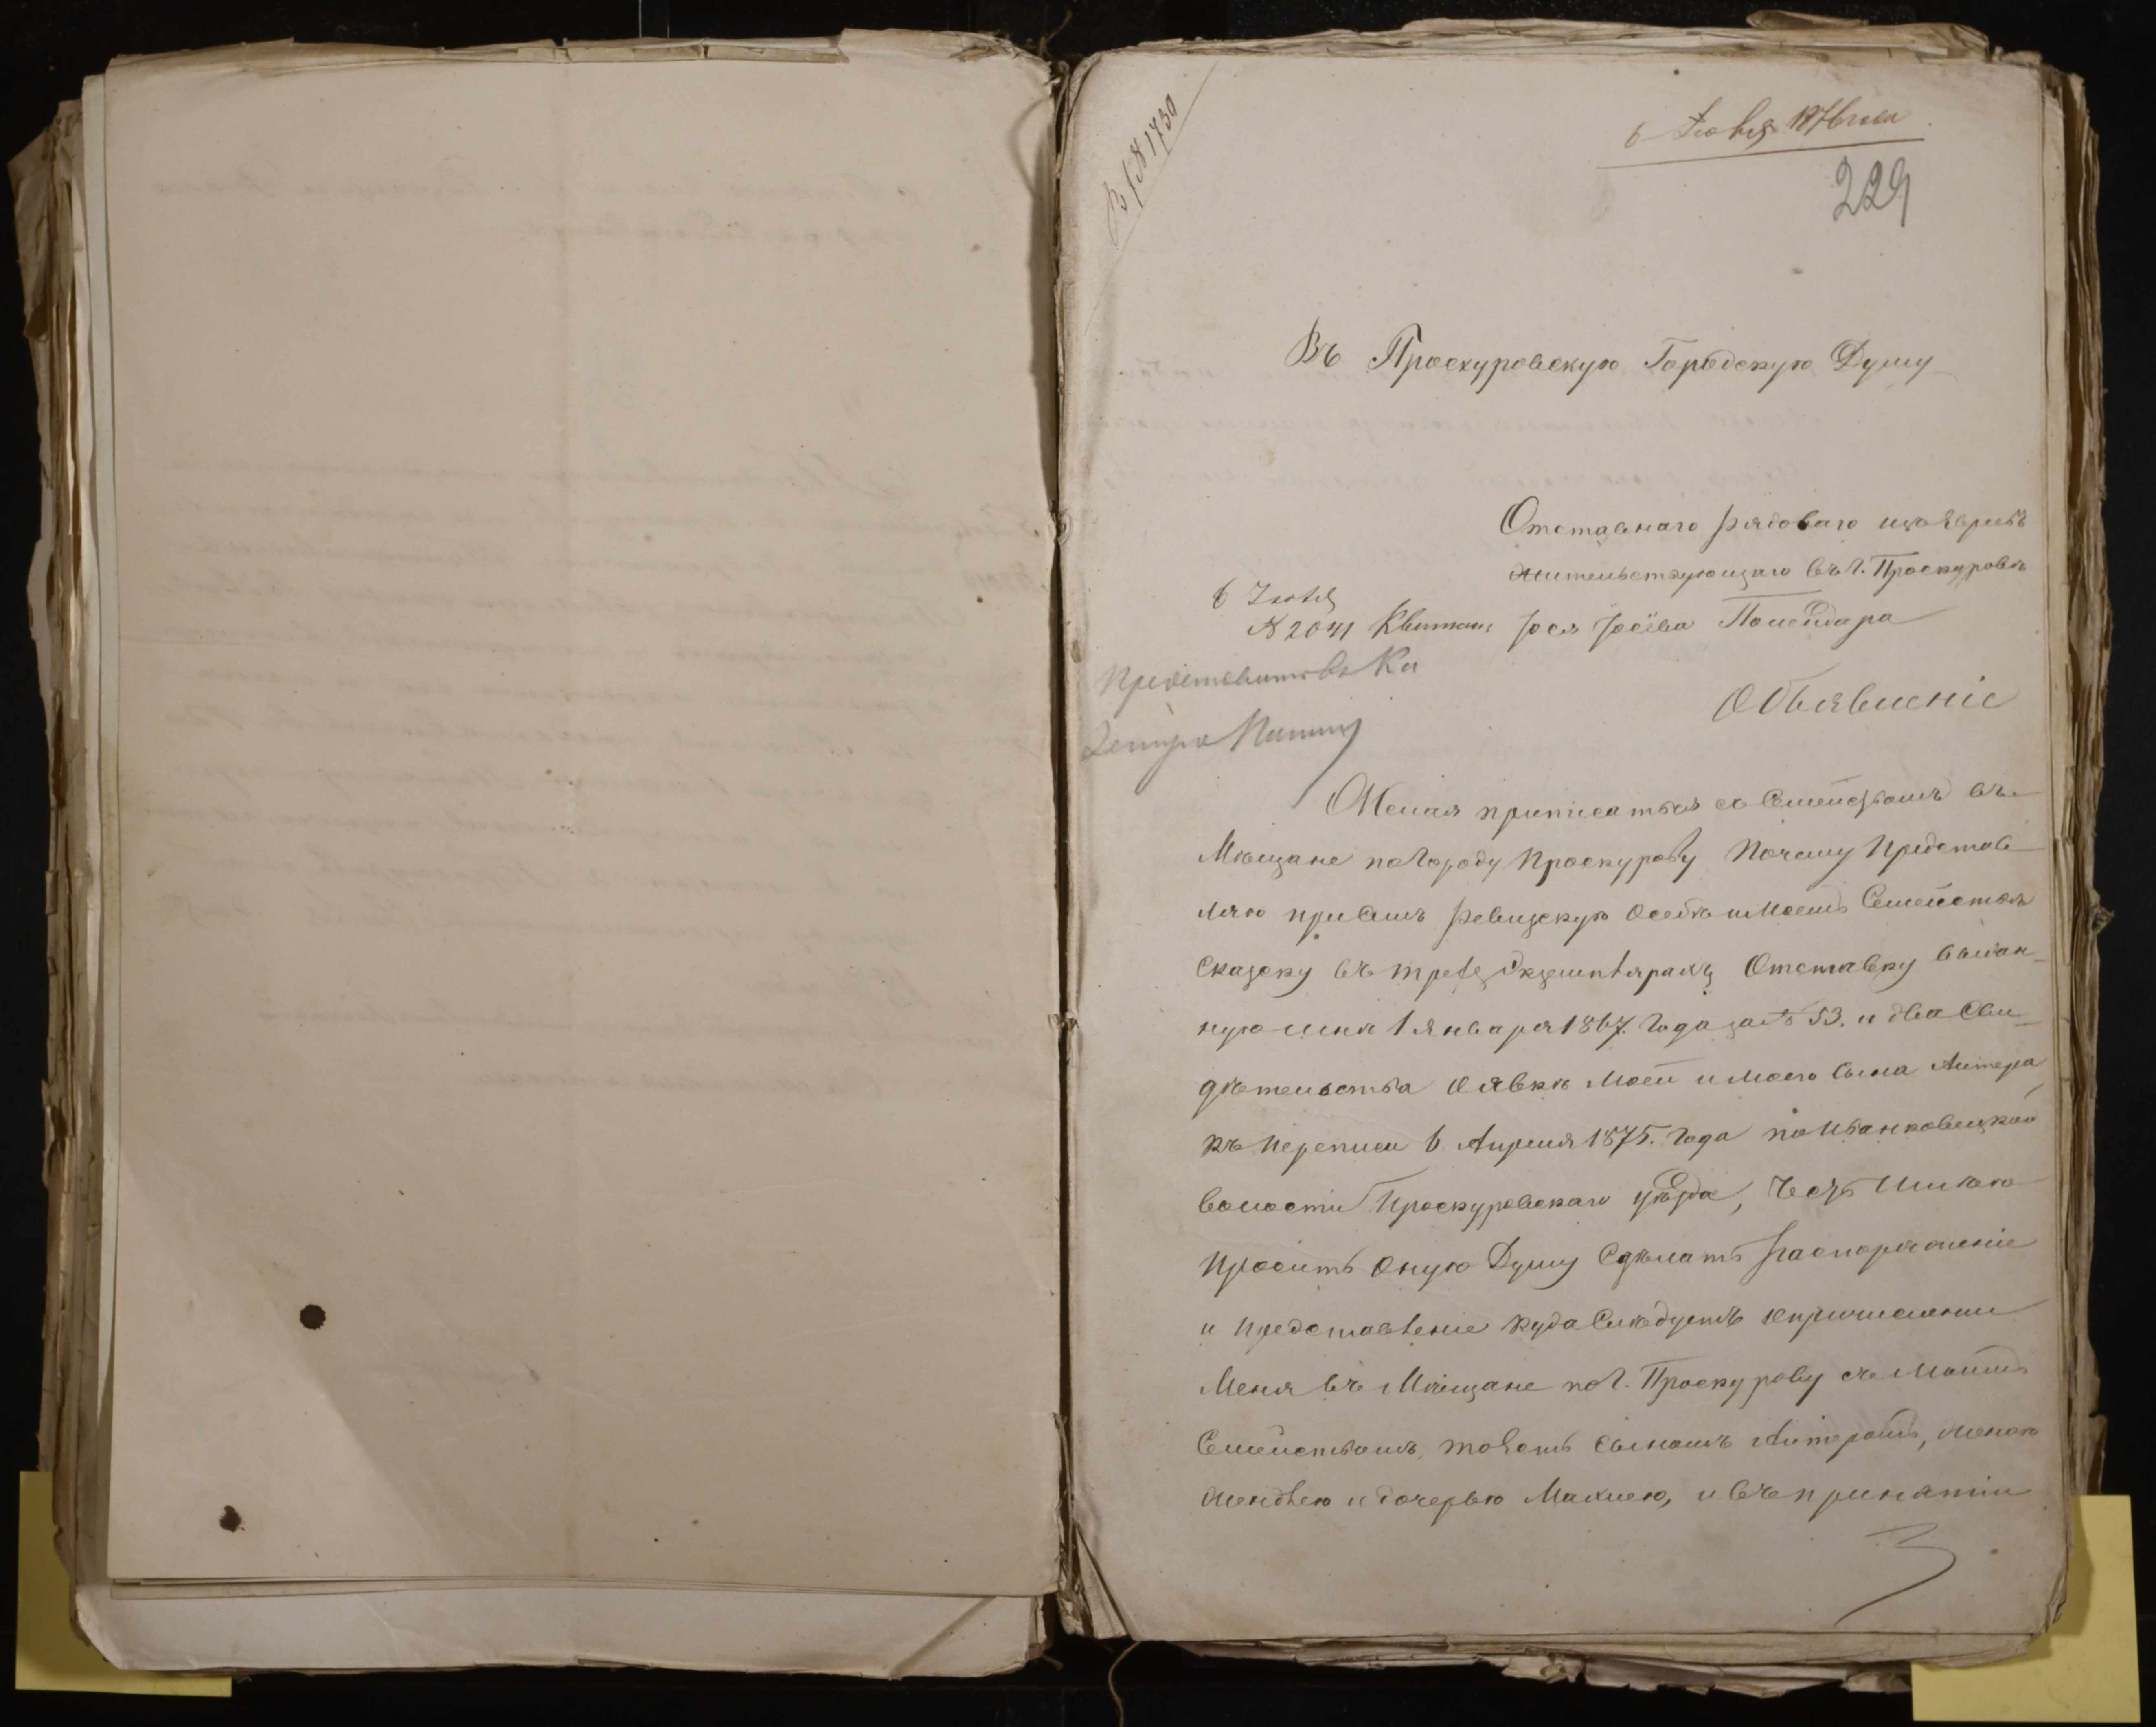 В / № 1730
6 Июля 1876 года
229
Въ Проскуровскую Городскую Думу
Отставнаго рядоваго изъ Евреевъ
жительствующаго въ г. Проскуровѣ
6 Іюля
№ 2041 Іося Іосіева
Объявленіе
Желая приписаться съ Семействомъ въ
Мѣщане по Городу Проскурову Почему Представ
ляю при семъ ревизскую о себѣ и Моемъ Семействѣ
Сказку въ трехъ Экземплярахъ Отставку выдан-
ную мнѣ 1 Января 1867. Года за № 53. и два Сви-
дѣтельства о явкѣ Моей и Моего Сына Литера
къ переписи 6. Апреля 1875. Года по Иванковецкой
волости Проскуровскаго уѣзда, Честь Имѣю
Просить Оную Думу Сдѣлать распоряженіе
и представленіе куда Слѣдуетъ о причисленіи
Меня въ Мѣщане по Г. Проскурову съ Моимъ
Семействомъ, то есть Сыномъ Литеромъ, женою
и дочерью Махлею, и въ принятіи